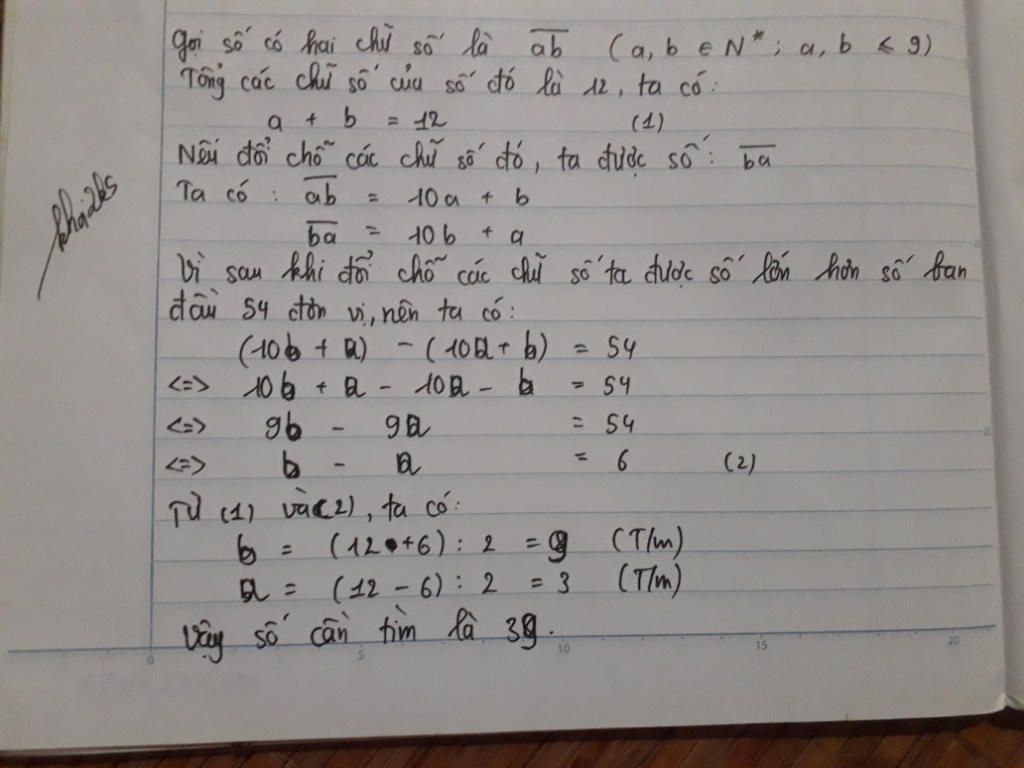 Gọi số có hai chữ số là ab (a, b ∈ N*; a, b ≤ 9)
Tổng các chữ số của số đó là 12, ta có:
a + b = 12 (1)
Nếu đổi chỗ các chữ số đó, ta được số: ba
Ta có: ab = 10a + b
ba = 10b + a
Vì sau khi đổi chỗ các chữ số ta được số lớn hơn số ban
đầu 54 đơn vị, nên ta có:
(10b + a) - (10a + b) = 54
<=> 10b + a - 10a - b = 54
<=> 9b - 9a = 54
<=> b - a = 6 (2)
Từ (1) và (2), ta có:
b = (12 + 6) : 2 = 9 (T/m)
a = (12 - 6) : 2 = 3 (T/m)
Vậy số cần tìm là 39.
khai2ks
0 5 10 15 20